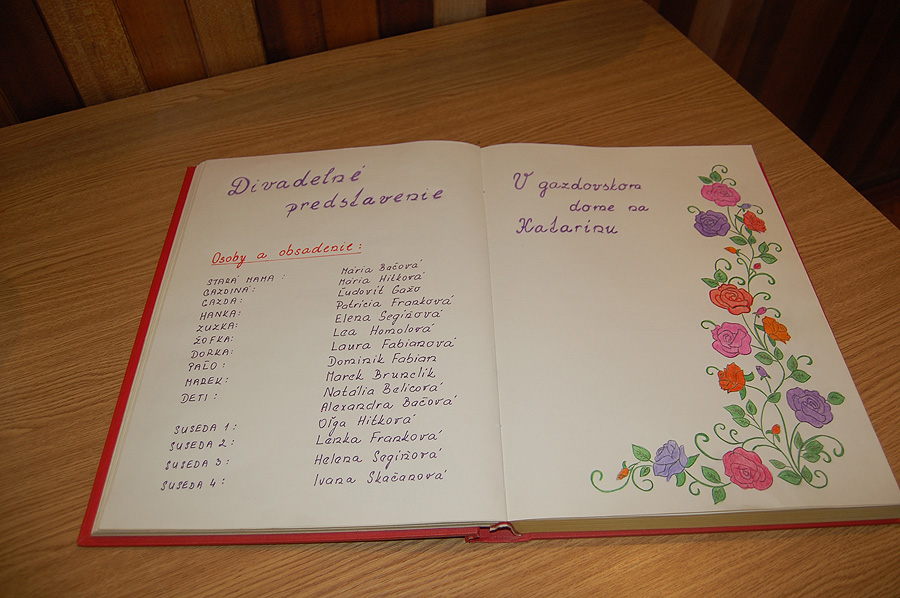 Divadelné
predstavenie
Osoby a obsadenie:
STARÁ MAMA: Mária Bačová
GAZDINÁ: Mária Hitková
GAZDA: Ľudovít Gažo
HANKA: Patrícia Franková
ZUZKA: Elena Segiňová
ŽOFKA: Lea Homolová
DORKA: Laura Fabianová
PAĽO: Dominik Fabian
MAREK: Marek Brunclik
DETI: Natália Belicová
Alexandra Bačová
SUSEDA 1: Oľga Hitková
SUSEDA 2: Lenka Franková
SUSEDA 3: Helena Segiňová
SUSEDA 4: Ivana Skačanová
V gazdovskom
dome na
Katarínu